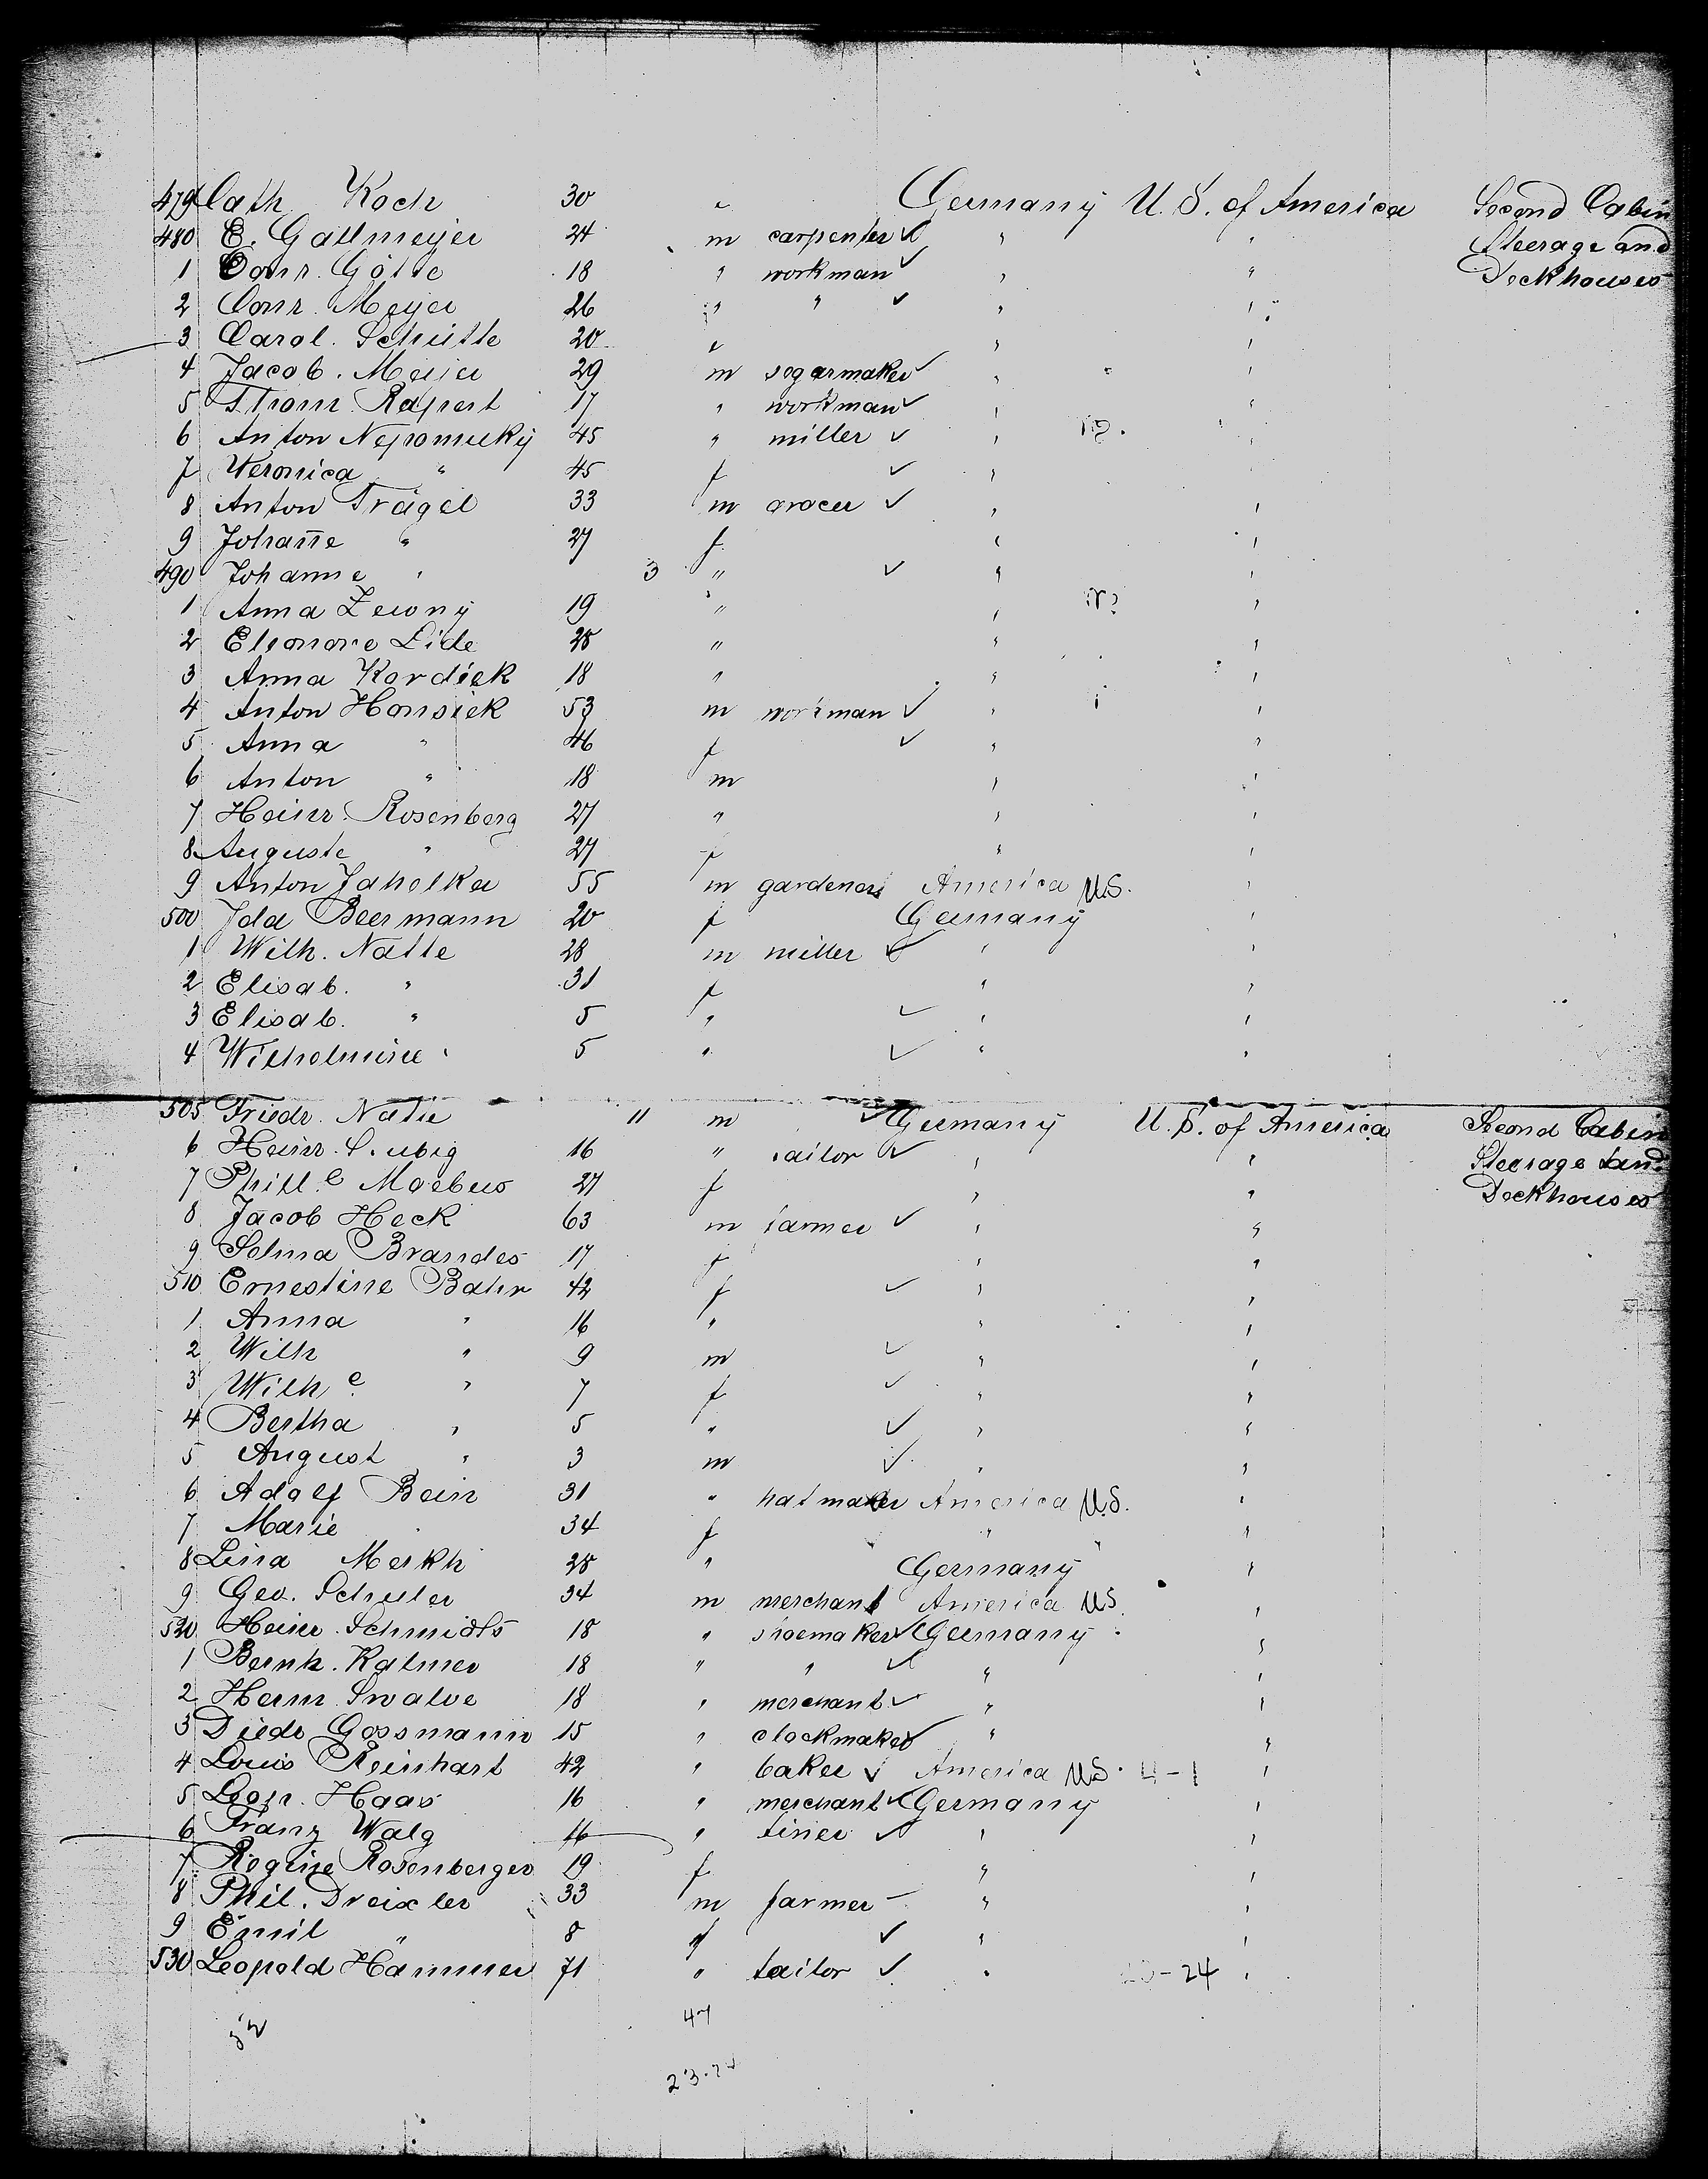 479 Cath Koch 30 " Germany U. S. of America Second Cabin
480 E. Gallmeyer 24 m carpenter ✓ " " Steerage and
1 Conr. Götte 18 " workman ✓ " " Deckhouses
2 Conr. Meyer 26 " " ✓ " "
3 Carol. Schütte 20 " "
4 Jacob. Meyer 29 m segarmaker ✓ " "
5 Thom. Rapert 17 " workman ✓ " "
6 Anton Nepomucky 45 " miller ✓ " "
7 Veronica " 45 f ✓ "
8 Anton Trägel 33 m grocer ✓ " "
9 Johanne " 27 f " "
490 Johanne " 3 " ✓ " "
1 Anna Zewny 19 " " "
2 Eleonore Lide 28 " " "
3 Anna Kordick 18 " " "
4 Anton Honsick 53 m workman ✓ " "
5 Anna " 46 f ✓ " "
6 Anton " 18 m " "
7 Heinr. Rosenberg 27 " " "
8 Auguste " 27 f " "
9 Anton Jaholka 55 m gardener America U.S. "
500 Ida Beermann 20 f Germany "
1 Wilh. Natte 28 m miller ✓ " "
2 Elisab. " 31 f " "
3 Elisab. " 5 " ✓ " "
4 Wilhelmine " 5 " ✓ " "
505 Friedr. Natte 11 m ✓ Germany U. S. of America Second Cabin
6 Heinr. 16 " tailor ✓ " " Steerage and
7 Phill.e Moebus 27 f " " Deckhouses
8 Jacob Heck 63 m farmer ✓ " "
9 Selma Brandes 17 f " "
510 Ernestine Bahr 42 f ✓ " "
1 Anna " 16 " " "
2 Wilh " 9 m ✓ " "
3 Wilh e. " 7 f ✓ " "
4 Bertha " 5 " ✓ " "
5 August " 3 m ✓ " "
6 Adolf Bein 31 " hatmaker America U.S. "
7 Marie " 34 f " " "
8 Lina Merkh 28 " Germany "
9 Geo. Schuler 34 m merchant America U.S. "
520 Heinr. Schmidts 18 " shoemaker ✓ Germany "
1 Bernh. Kalmer 18 " " ✓ " "
2 Herm. Swalve 18 " merchant ✓ " "
3 Diedr Gossmann 15 " clockmaker ✓ " "
4 Louis Reinhart 42 " baker ✓ America U.S. 4-1 "
5 Leop. Haas 16 " merchant ✓ Germany "
6 Franz Walg 16 " tiner ✓ " "
7 Regine Rosenberger 19 f " "
8 Phil. Dreixler 33 m farmer - " "
9 Emil " 8 " ✓ " "
530 Leopold Hammer 71 " tailor ✓ " -24 "
47